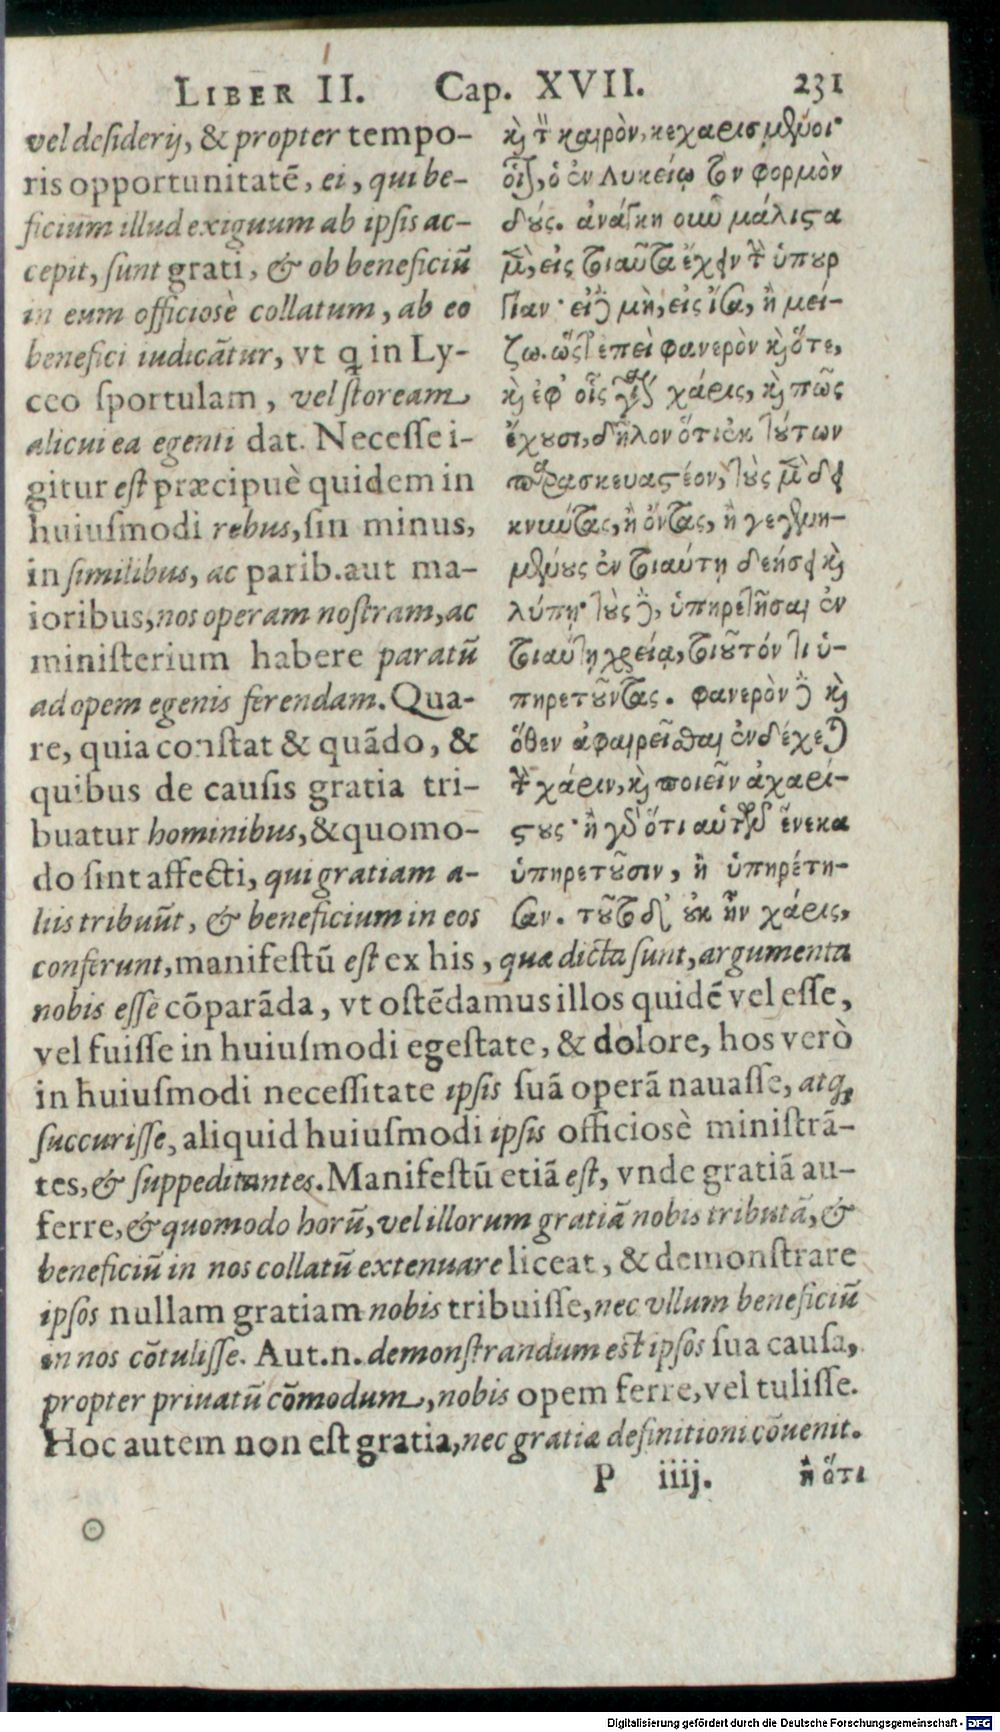 LIBER II. Cap. XVII. 231
vel desiderij, & propter tempo-
ris opportunitatē, ei, qui be-
ficium illud exiguum ab ipsis ac-
cepit, sunt grati, & ob beneficiū
in eum officiosè collatum, ab eo
benefici iudicātur, vt q in Ly-
ceo sportulam, vel stoream
alicui ea egenti dat. Necesse i-
gitur est præcipuè quidem in
huiusmodi rebus, sin minus,
in similibus, ac parib. aut ma-
ioribus, nos operam nostram, ac
ministerium habere paratū
ad opem egenis ferendam. Qua-
re, quia constat & quādo, &
quibus de causis gratia tri-
buatur hominibus, & quomo-
do sint affecti, qui gratiam a-
liis tribuūt, & beneficium in eos
καὶ τὸν καιρὸν, κεχαρισμένοι·
οἷον, ὁ ἐν Λυκείῳ τὸν φορμὸν
δούς. ἀνάγκη οὖν μάλιστα
μὲν, εἰς ταῦτα ἔχειν τὴν ὑπουρ
γίαν· εἰ δὲ μὴ, εἰς ἴσα, ἢ μεί-
ζω. ὥστ' ἐπεὶ φανερὸν καὶ ὅτε,
καὶ ἐφ' οἷς γίνεται χάρις, καὶ πῶς
ἔχουσι, δῆλον ὅτι ἐκ τούτων
παρασκευαστέον, τοὺς μὲν δει
κνύντας, ἢ ὄντας, ἢ γεγενη-
μένους ἐν τοιαύτῃ δεήσει καὶ
λύπῃ· τοὺς δὲ, ὑπηρετῆσαι ἐν
τοιαύτῃ χρείᾳ, τοιοῦτόν τι ὑ-
πηρετοῦντας. φανερὸν δὲ καὶ
ὅθεν ἀφαιρεῖσθαι ἐνδέχεται
τὴν χάριν, καὶ ποιεῖν ἀχαρί-
στους· ἢ γὰρ ὅτι αὑτῶν ἕνεκα
ὑπηρετοῦσιν, ἢ ὑπηρέτη-
σαν. τοῦτο δ' οὐκ ἦν χάρις,
conferunt, manifestū est ex his, quæ dicta sunt, argumenta
nobis esse cōparāda, vt ostēdamus illos quidē vel esse,
vel fuisse in huiusmodi egestate, & dolore, hos verò
in huiusmodi necessitate ipsis suā operā nauasse, atq;
succurisse, aliquid huiusmodi ipsis officiosè ministrā-
tes, & suppeditantes. Manifestū etiā est, vnde gratiā au-
ferre, & quomodo horū, vel illorum gratiā nobis tributā, &
beneficiū in nos collatū extenuare liceat, & demonstrare
ipsos nullam gratiam nobis tribuisse, nec vllum beneficiū
in nos cōtulisse. Aut.n. demonstrandum est ipsos sua causa,
propter priuatū cōmodum, nobis opem ferre, vel tulisse.
Hoc autem non est gratia, nec gratiæ definitioni cōuenit.
P iiij. ἢ ὅτι
Digitalisierung gefördert durch die Deutsche Forschungsgemeinschaft - DFG